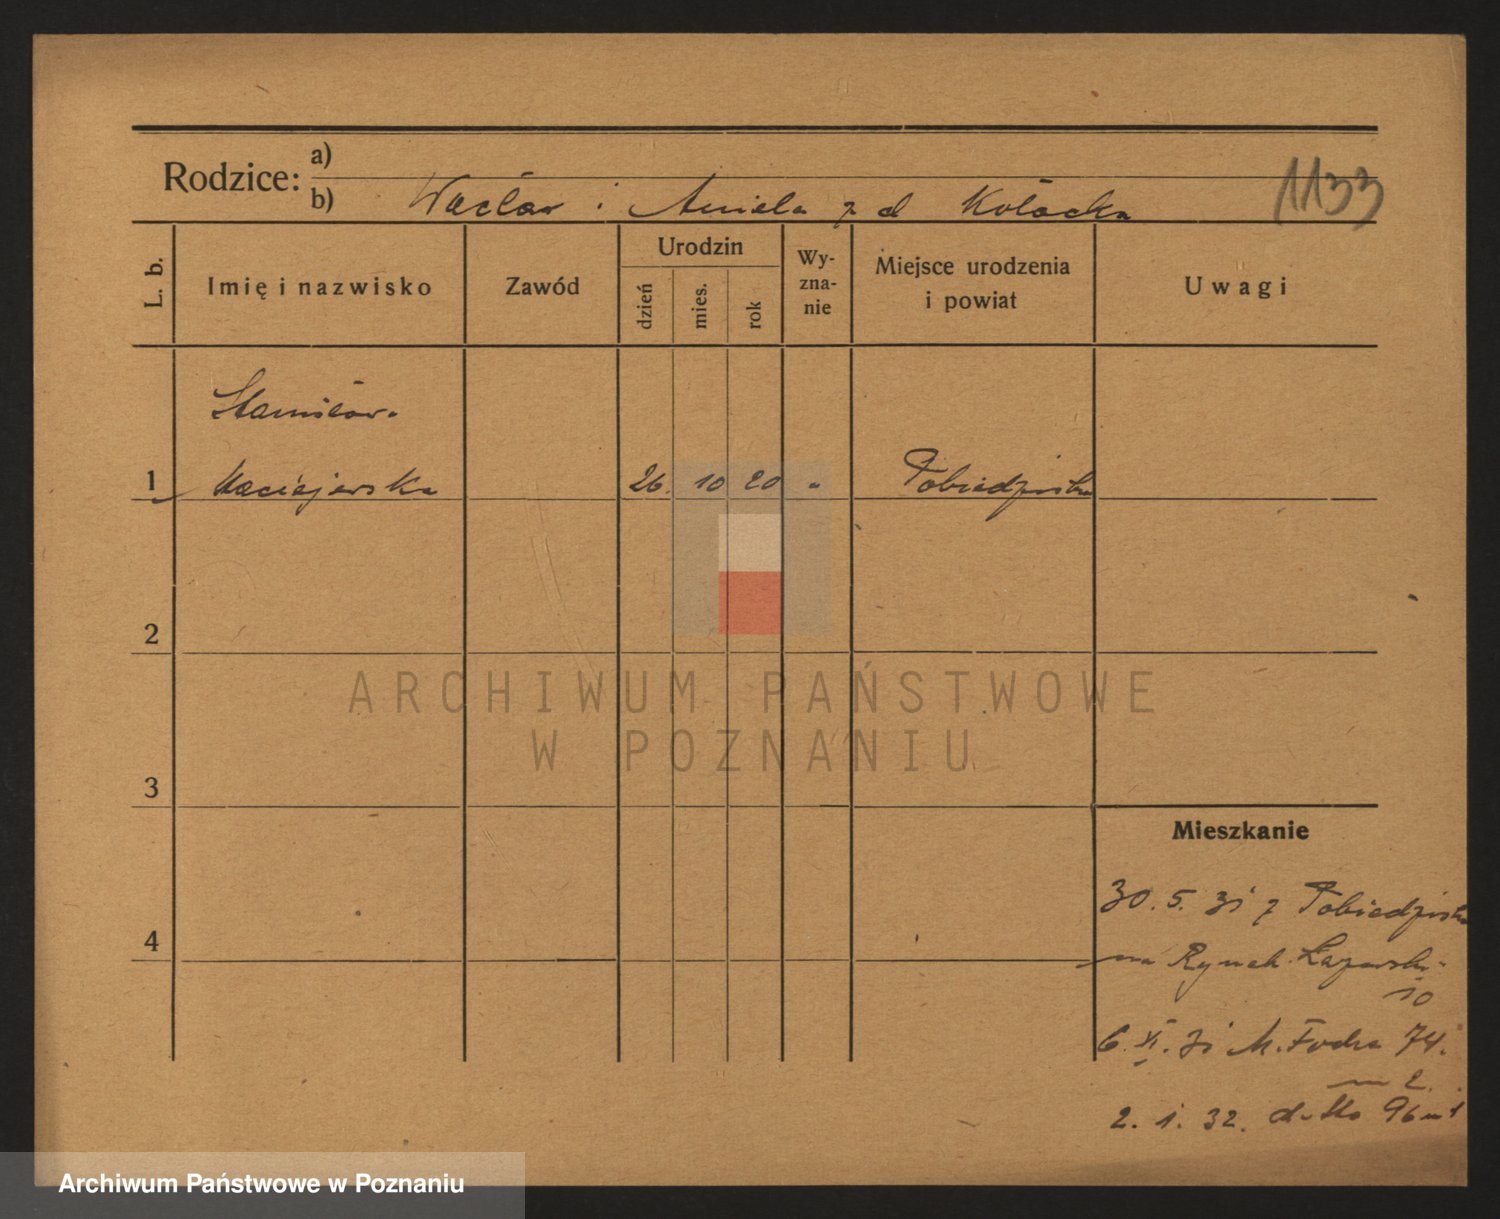 Rodzice:
a)
b) Wacław i Aniela z d Kołacka
1133
L. b.
Imię i nazwisko
Zawód
Urodzin
dzień
mies.
rok
Wy-
zna-
nie
Miejsce urodzenia
i powiat
Uwagi
Stanisława
1 Maciejewska 26. 10 20 " Pobiedziska
2
3
4
Mieszkanie
30. 5. 31 z Pobiedziska
na Rynek Łazarski
10
6. XI. 31 M. Focha 74.
m 2.
2. 1. 32. d-tto 96 m 1
ARCHIWUM PAŃSTWOWE
W POZNANIU
Archiwum Państwowe w Poznaniu